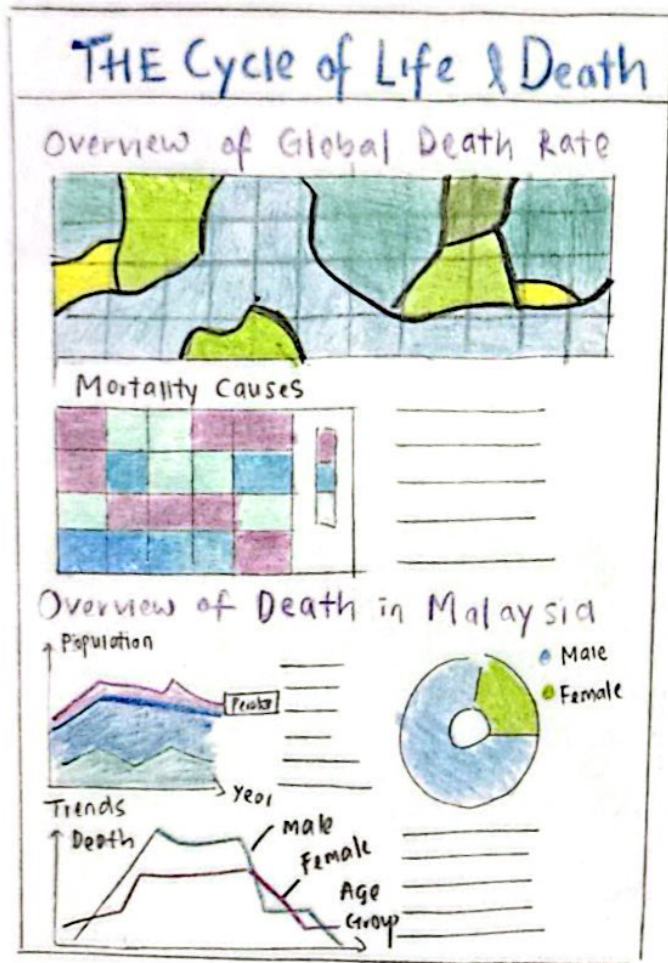 THE Cycle of Life & Death
Overview of Global Death Rate
Mortality Causes
Overview of Death in Malaysia
Population
Male
Female
Year
Trends
Death
Male
Female
Age
Group